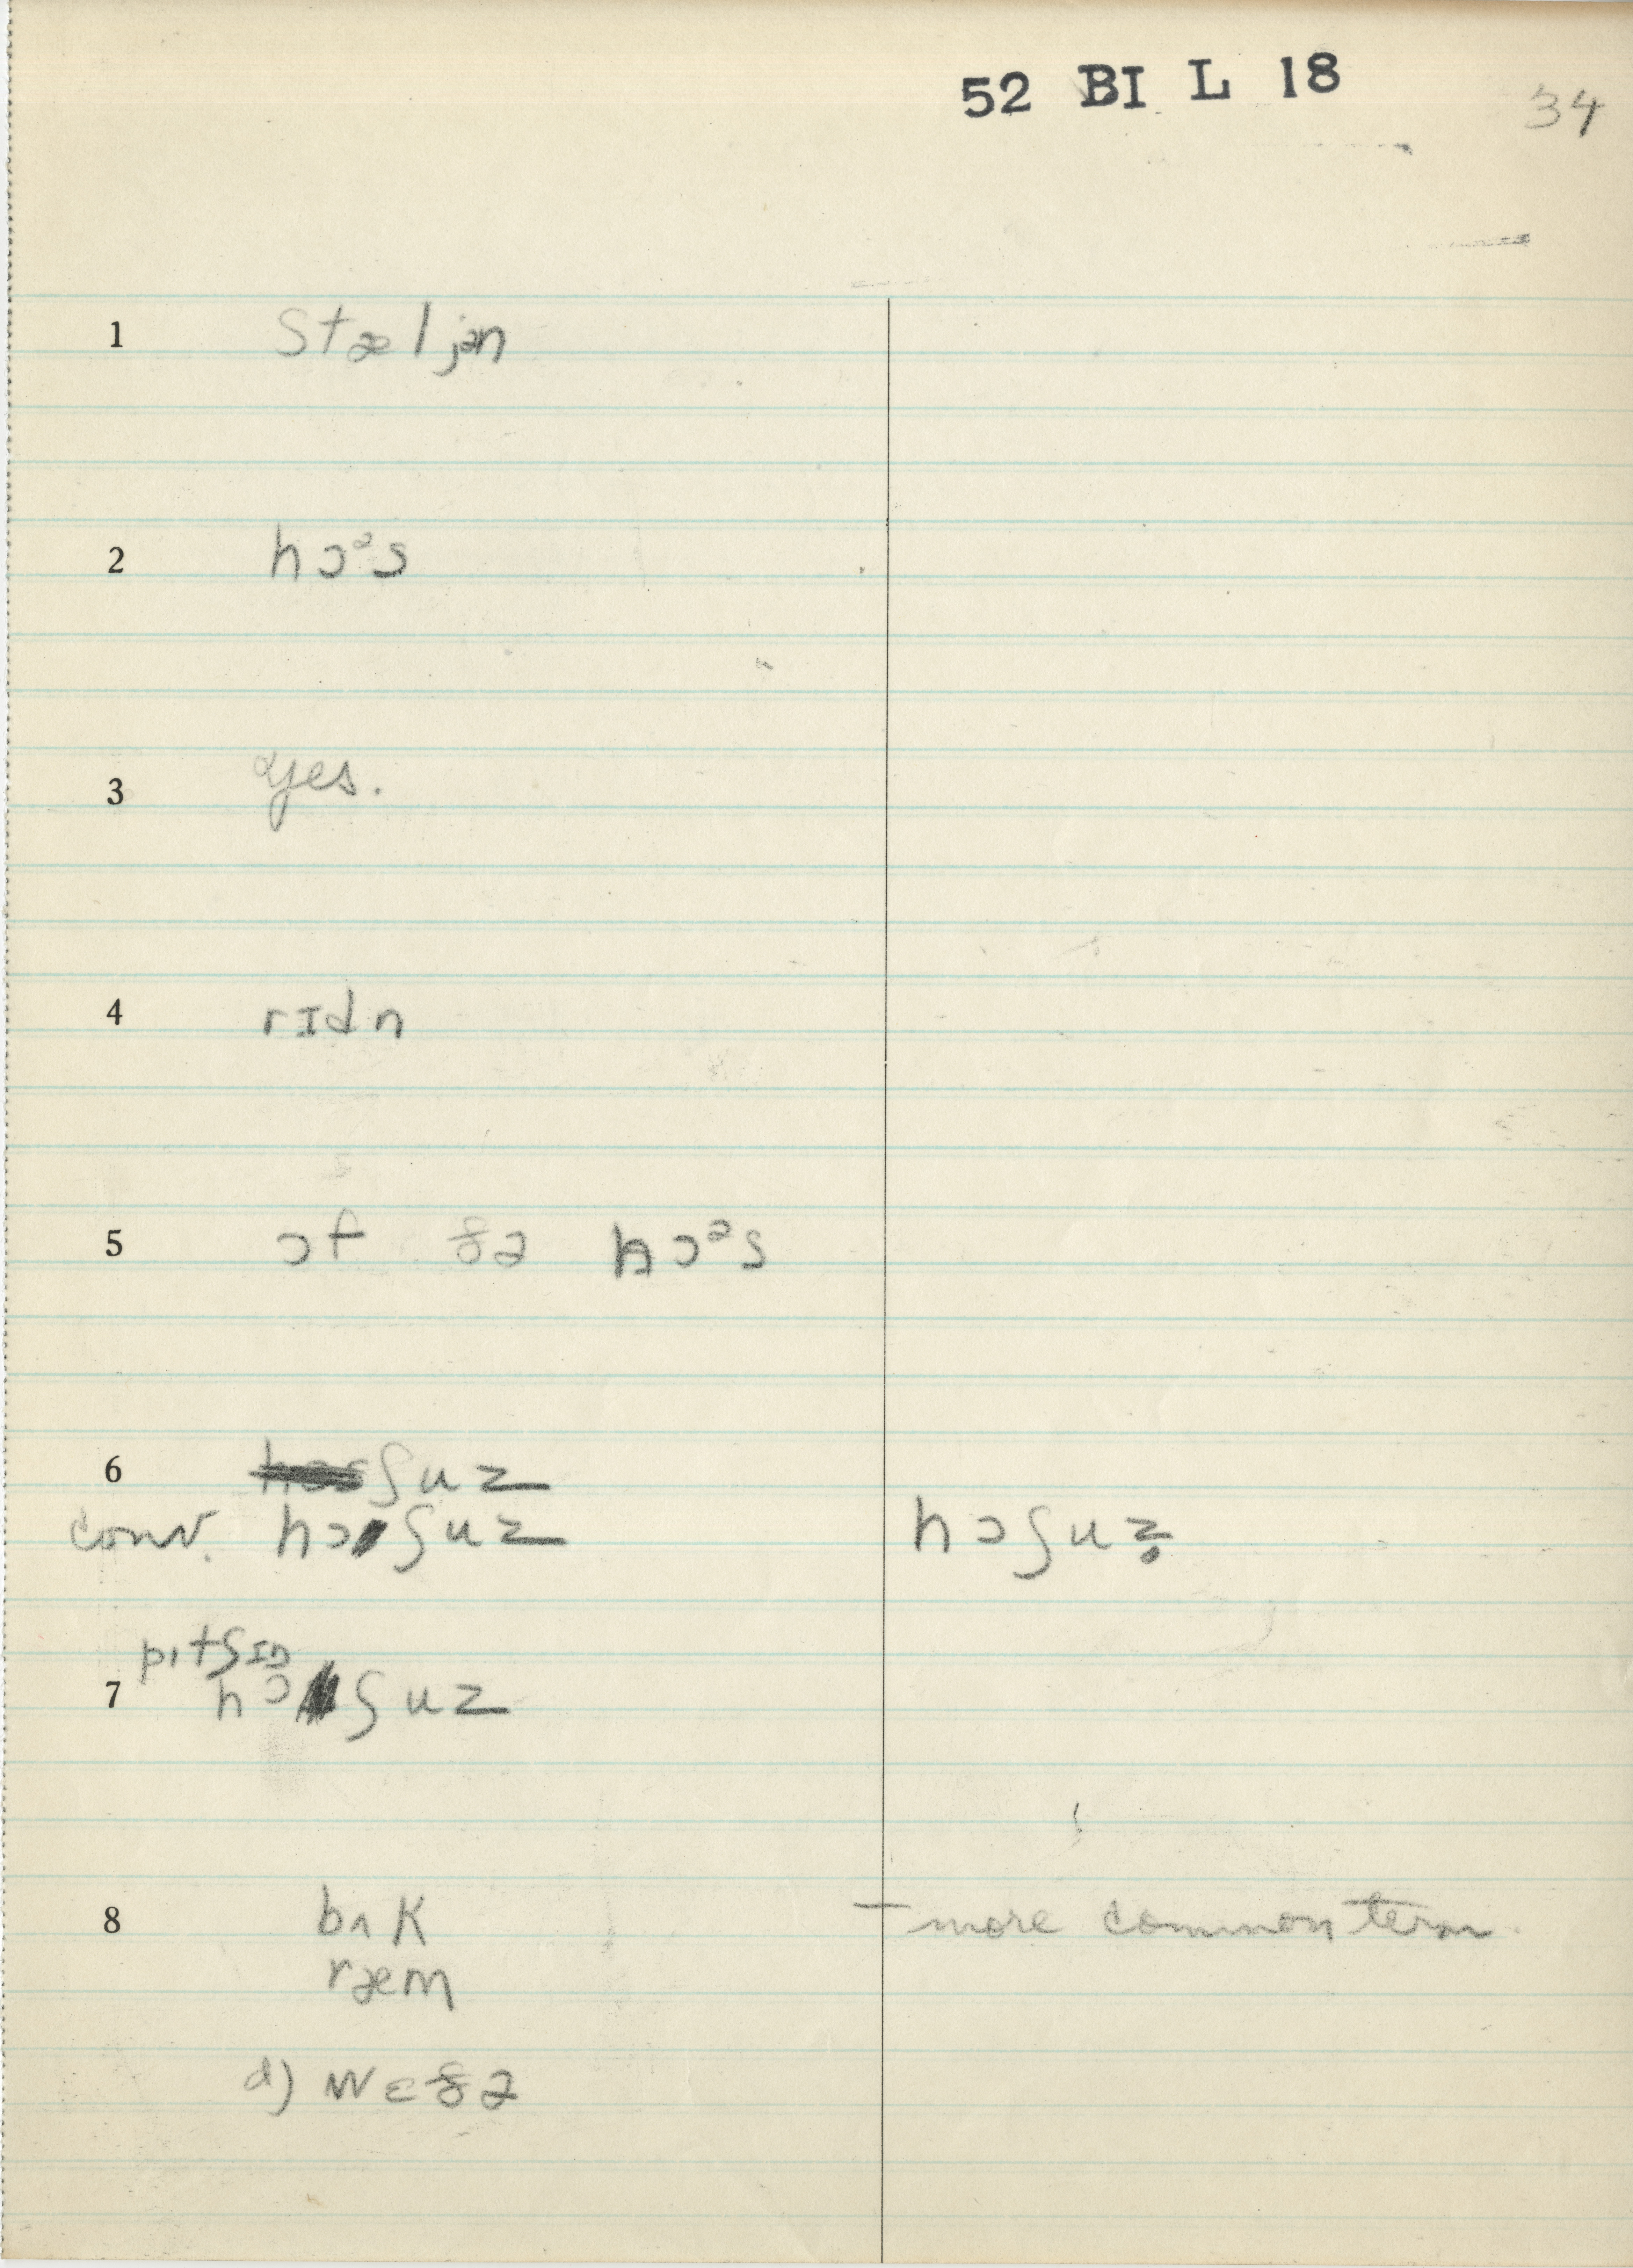 52 BI L 18 34
1 stæljən
2 hɔᵊs
3 yes.
4 rɪdn
5 ɔf ðə hɔᵊs
6 ʃuz
conv. hɔʃuz hɔʃuz̥
pitʃɪŋ
7 hɔʃuz
8 bʌk – more common term
ræm
d) wɛðə